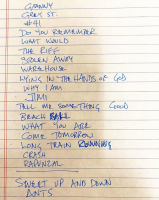 GRANNY
GREY ST.
#41
DO YOU REMEMBER
WHAT WOULD
THE RIFF
STOLEN AWAY
WAREHOUSE
LYING IN THE HANDS OF GOD
WHY I AM
JIMI
TELL ME SOMETHING GOOD
BEACH BALL
WHAT YOU ARE
COME TOMORROW
LONG TRAIN RUNNING
CRASH
RAPUNZEL
SWEET UP AND DOWN
ANTS